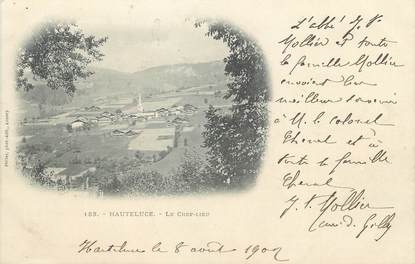 L'abbé J. V.
Mollier et toute
la famille Mollier
envoient leur
meilleur souvenir
à M. le colonel
Cheval et à
toute la famille
Cheval
J. V. Mollier
curé de Gilly
123. - HAUTELUCE. - LE CHEF-LIEU
Hauteluce le 8 août 1902